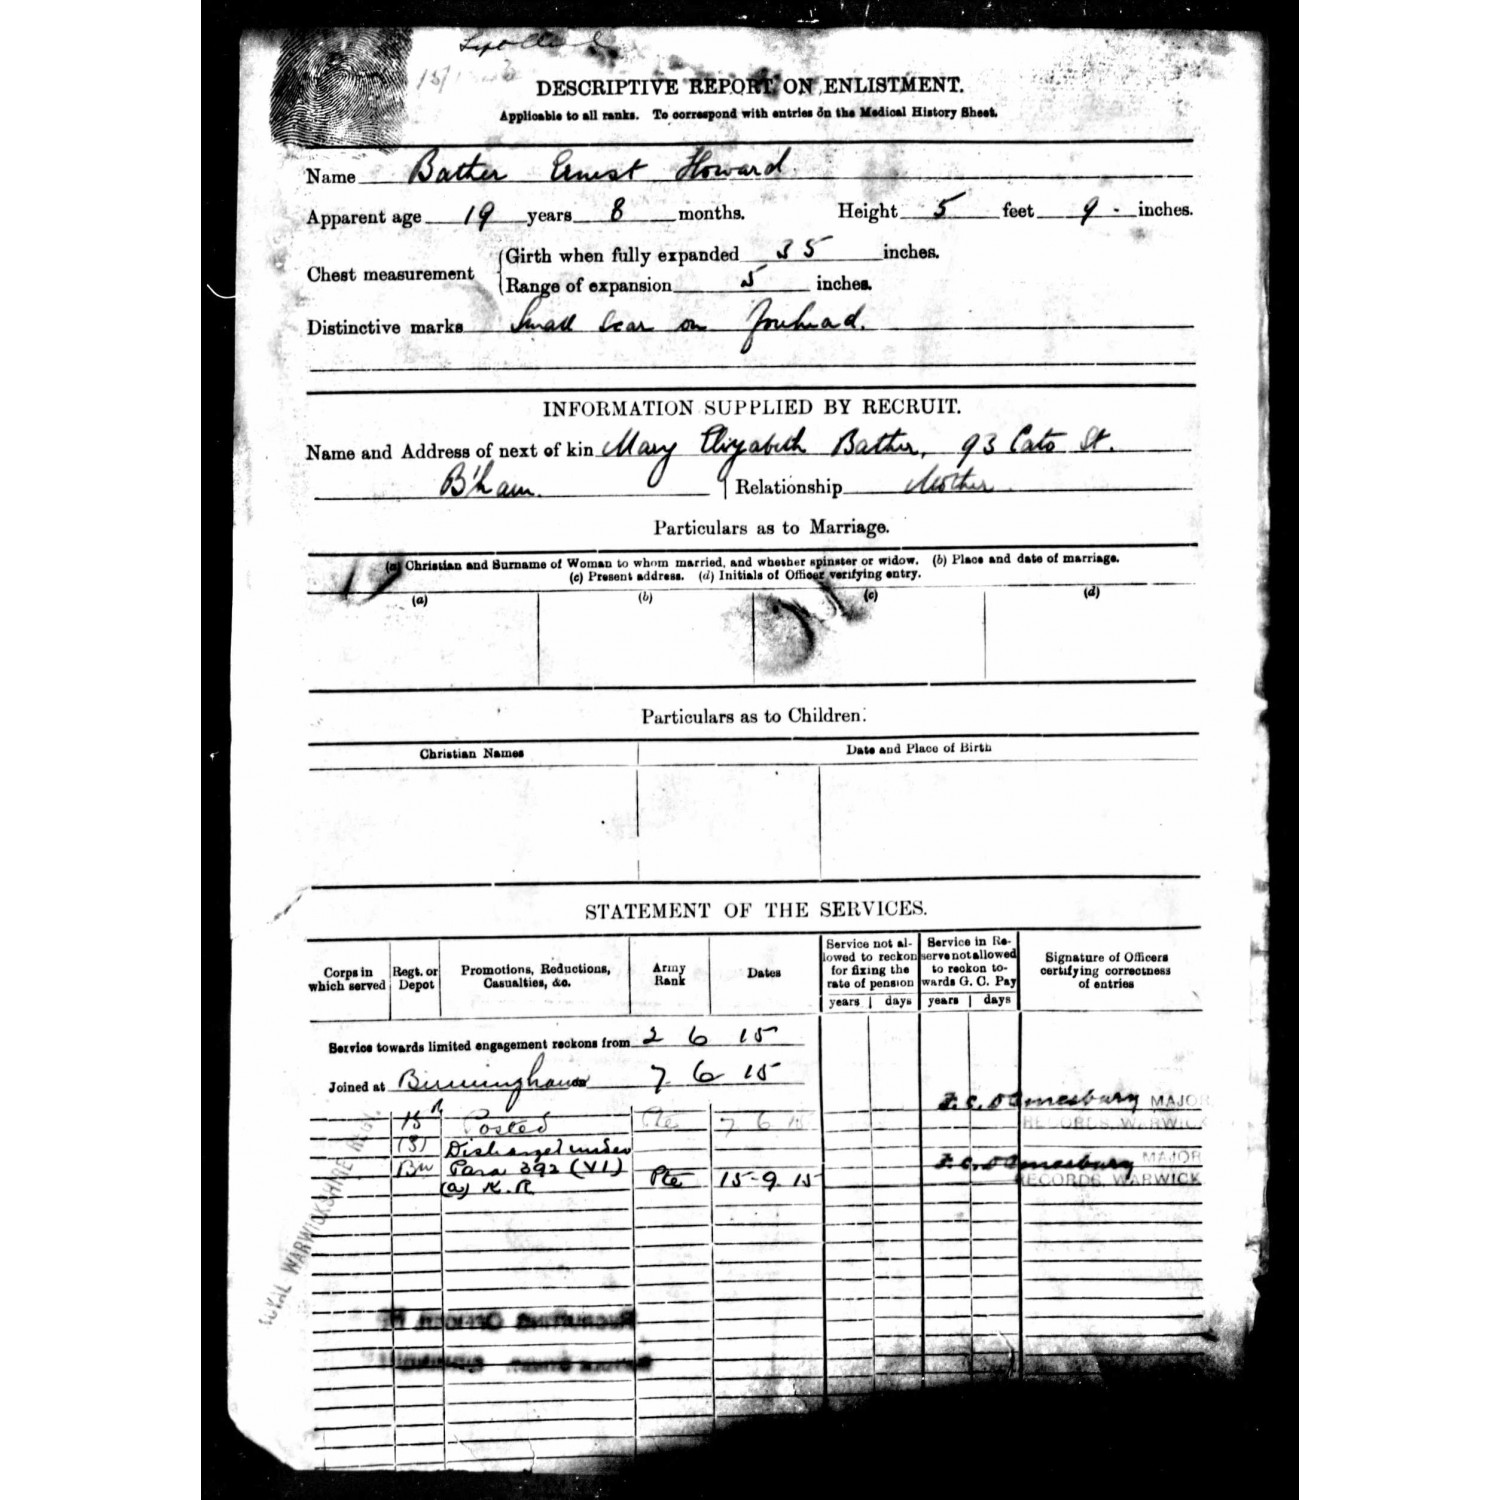 DESCRIPTIVE REPORT ON ENLISTMENT.
Applicable to all ranks. To correspond with entries on the Medical History Sheet.
Name Bather Ernest Howard
Apparent age 19 years 8 months. Height 5 feet 9 inches.
Chest measurement
Girth when fully expanded 35 inches.
Range of expansion 5 inches.
Distinctive marks Small Scar on forehead.
INFORMATION SUPPLIED BY RECRUIT.
Name and Address of next of kin Mary Elizabeth Bather, 93 Cato St.
B'ham. Relationship Mother
Particulars as to Marriage.
(a) Christian and Surname of Woman to whom married, and whether spinster or widow. (b) Place and date of marriage.
(c) Present address. (d) Initials of Officer verifying entry.
(a) (b) (c) (d)
Particulars as to Children.
Christian Names Date and Place of Birth
STATEMENT OF THE SERVICES.
Corps in which served
Regt. or Depot
Promotions, Reductions, Casualties, &c.
Army Rank
Dates
Service not allowed to reckon for fixing the rate of pension
years days
Service in Reserve not allowed to reckon towards G. C. Pay
years days
Signature of Officers certifying correctness of entries
Service towards limited engagement reckons from 2 6 15
Joined at Birmingham 7 6 15
15 Posted Pte 7 6 15
MAJOR
RECORDS, WARWICK
(3) Discharged under
Bn Para 392 (VI)
(a) K.R. Pte 15-9-15
MAJOR
RECORDS, WARWICK
ROYAL WARWICKSHIRE REGT.